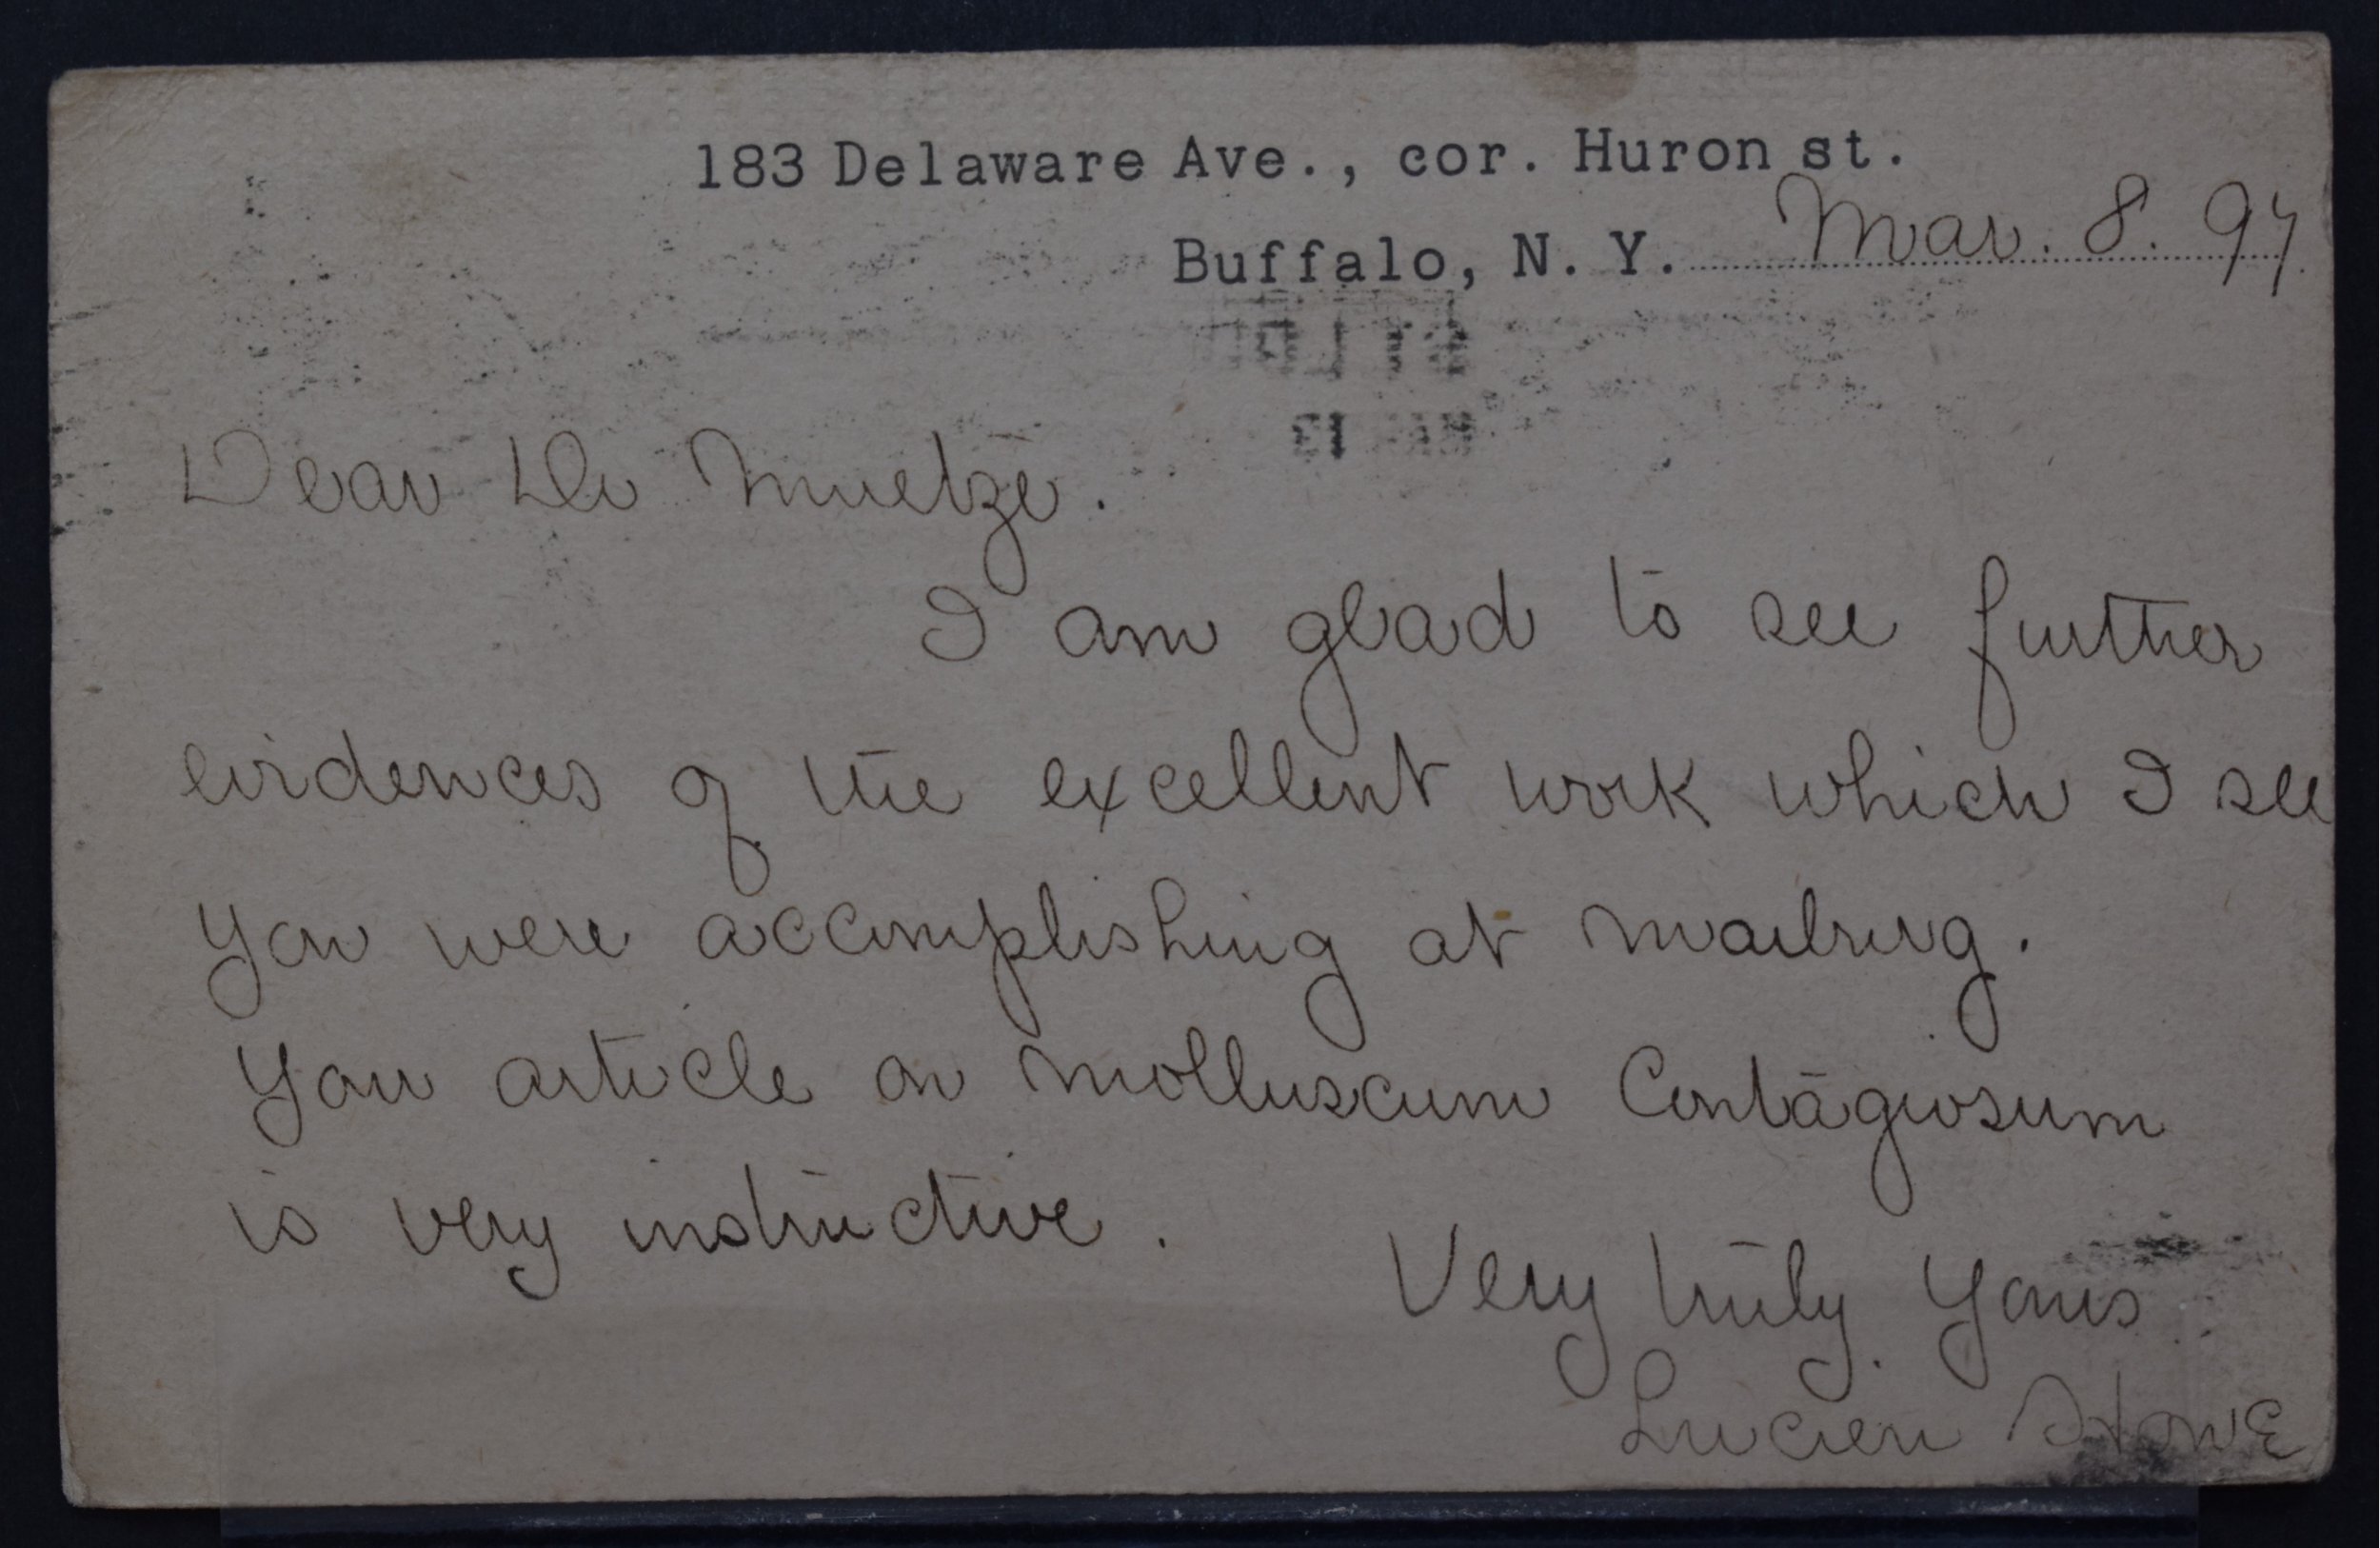 183 Delaware Ave., cor. Huron st.
Buffalo, N. Y. Mar. 8. 97
Dear Dr Muetze.
I am glad to see further
evidences of the excellent work which I see
you were accomplishing at Marburg.
Your article on Molluscum Contagiosum
is very instructive.
Very truly yours
Lucien Howe